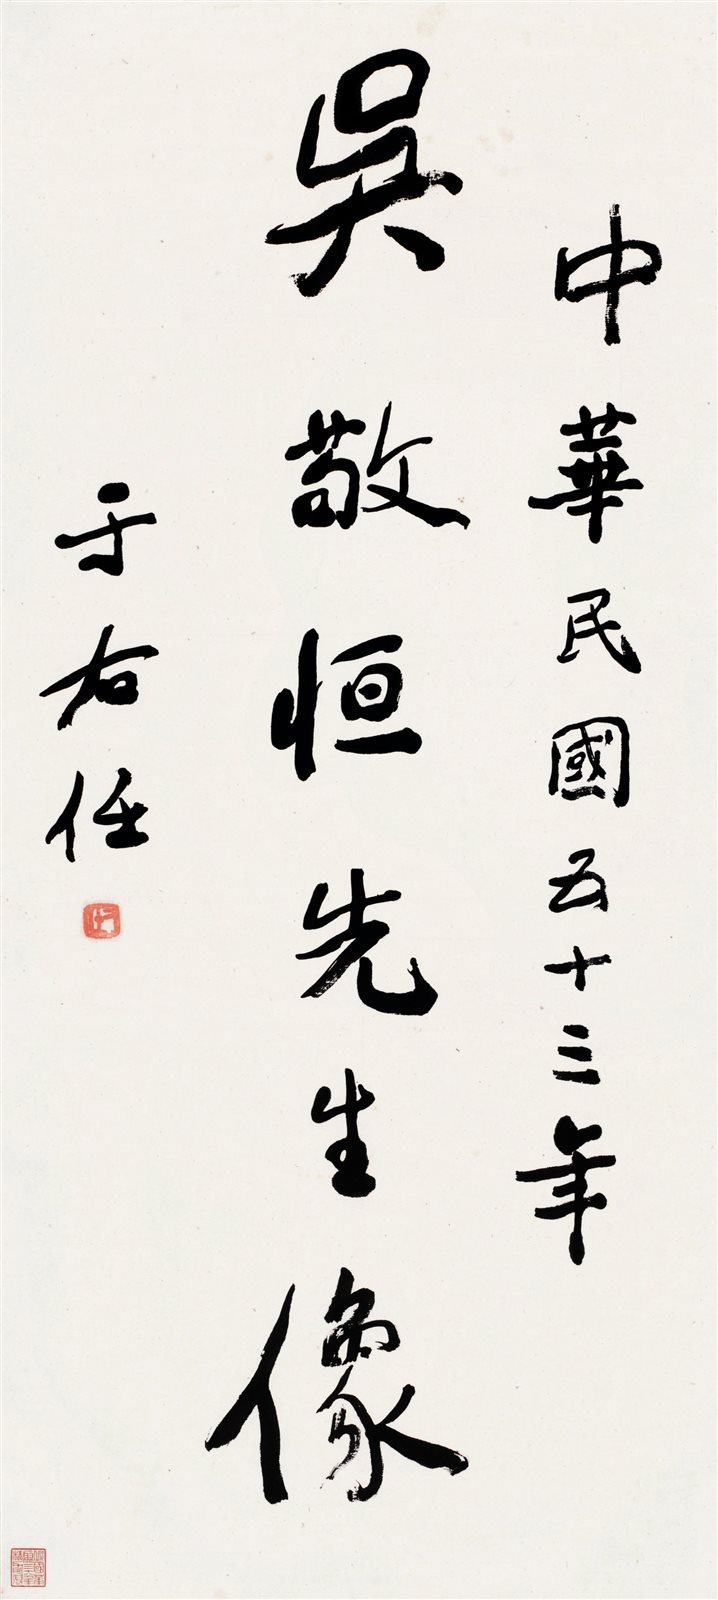 中華民國五十三年
吳敬恒先生像
于右任